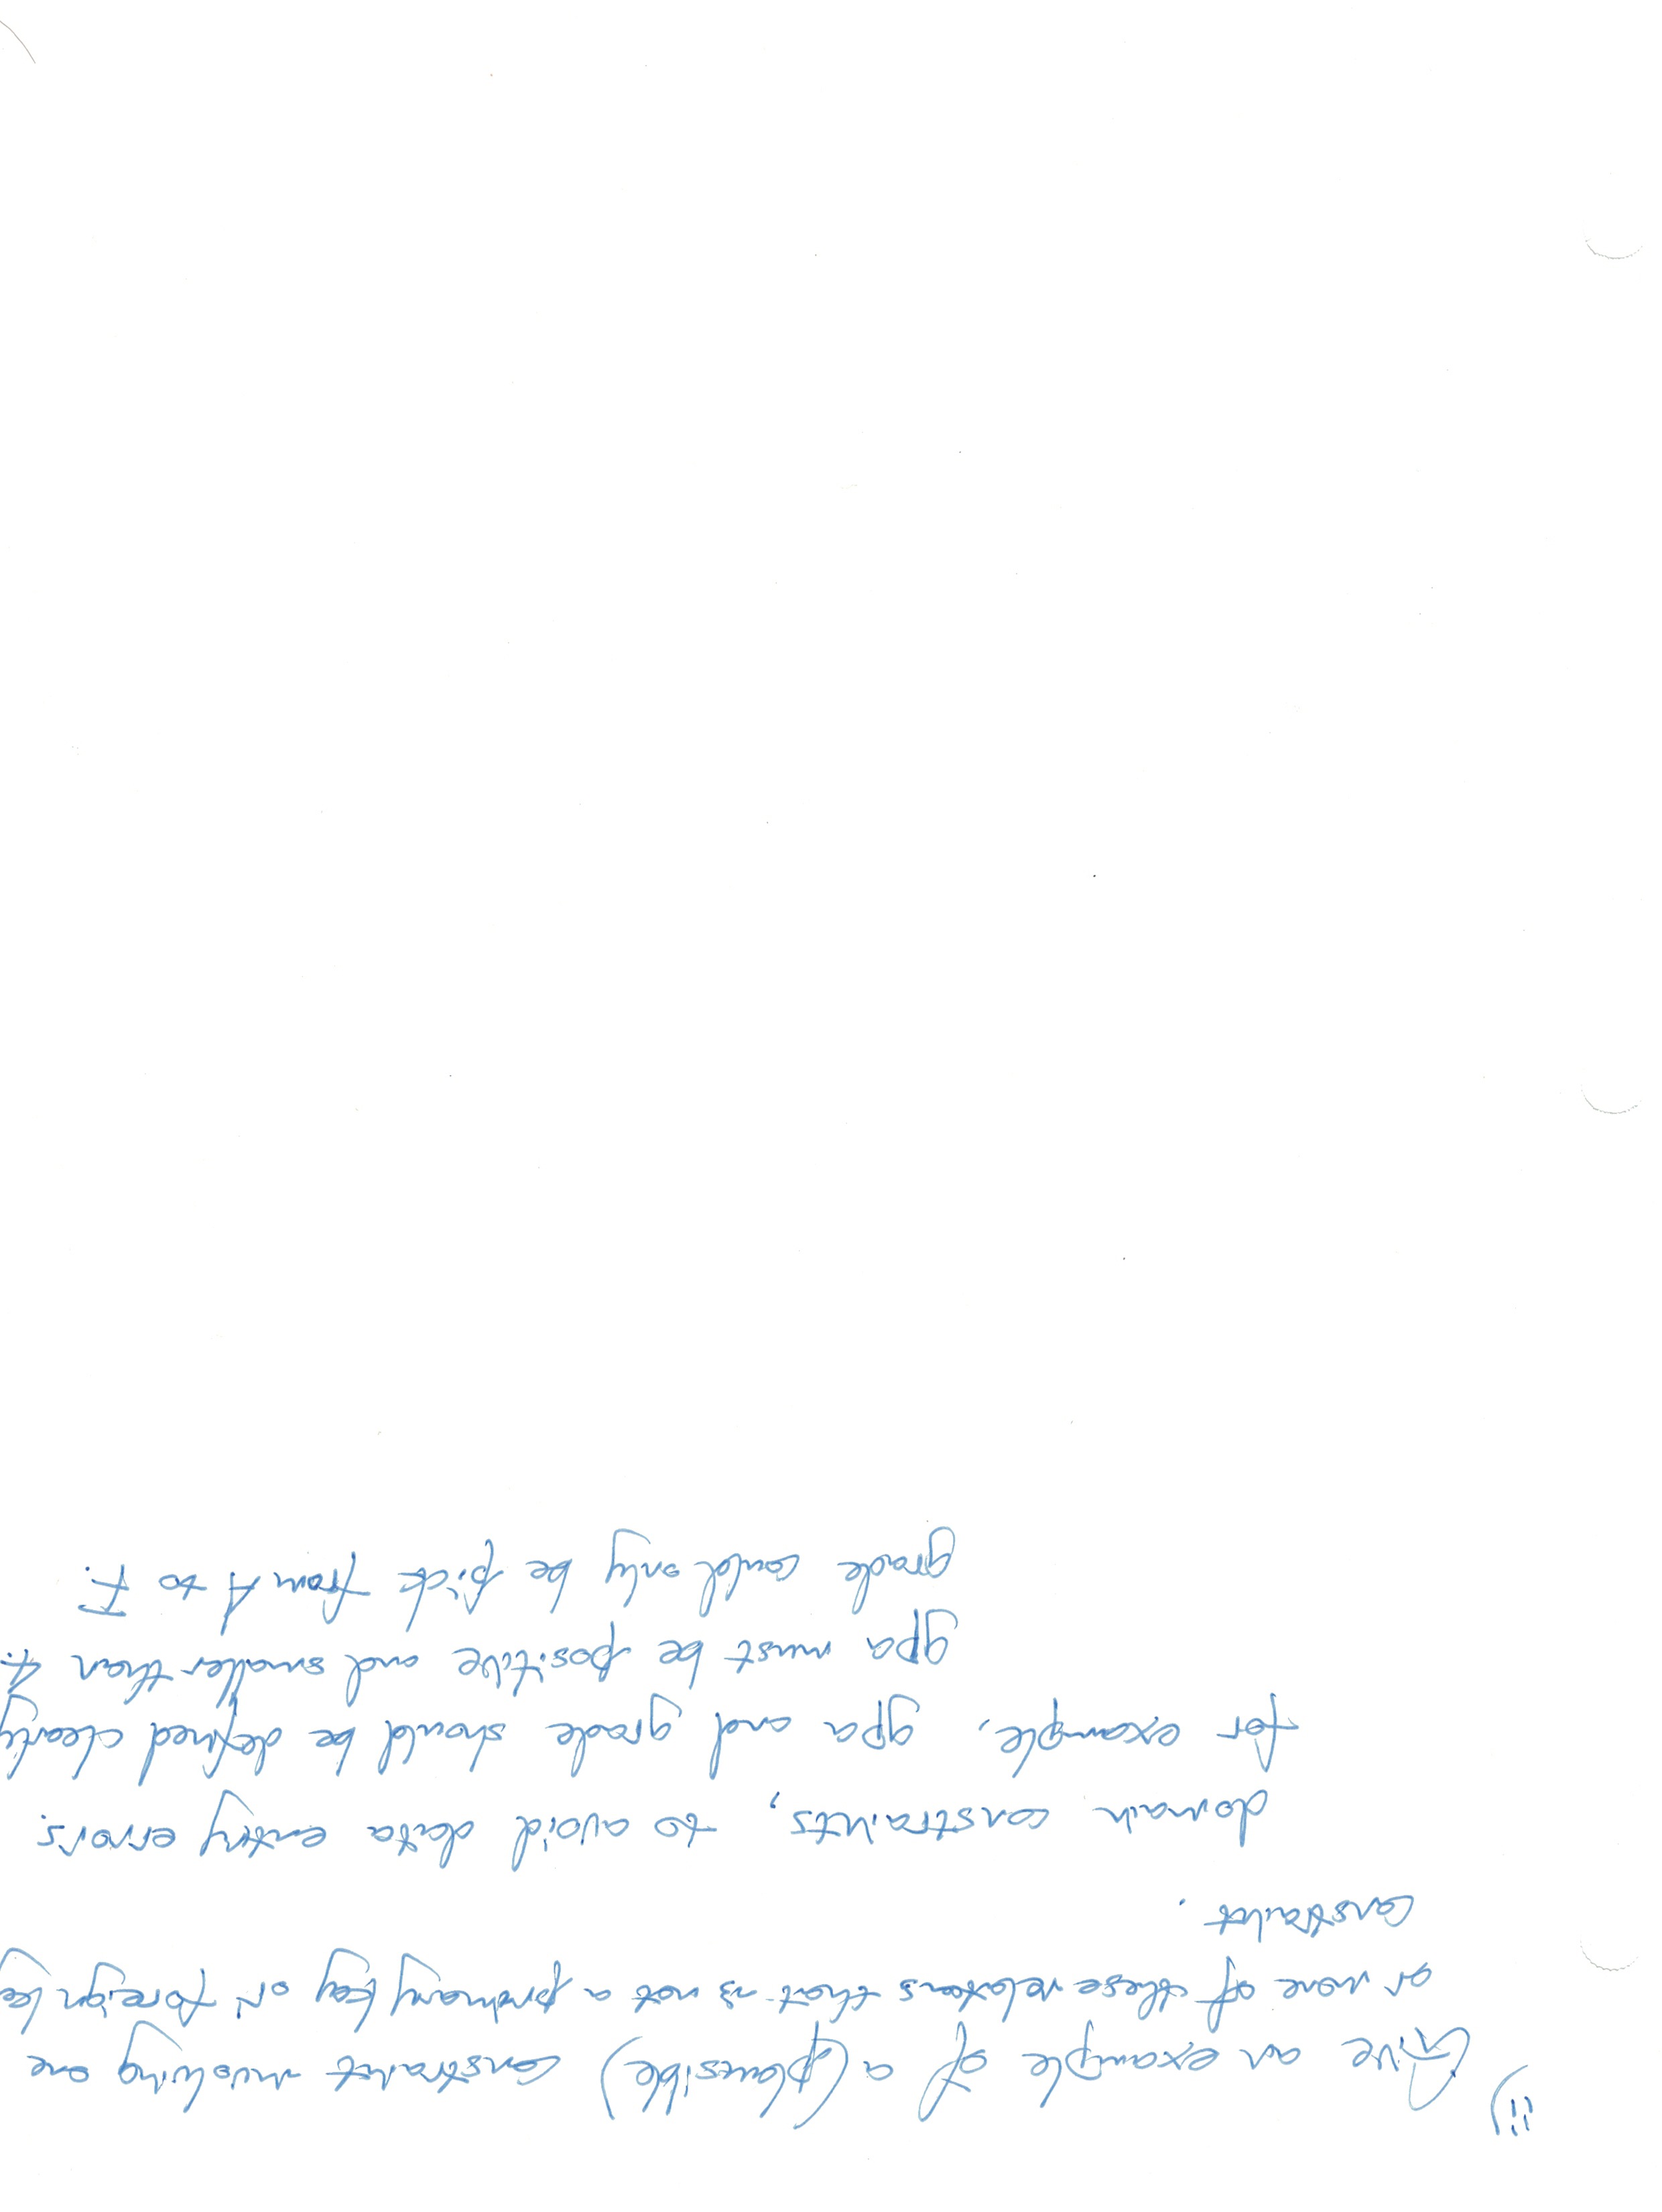 ii)
Give an example of a (plausible) constraint involving one
or more of these relations that is not a primary key or foreign ke
constraint.
domain constraints, to avoid data entry errors.
for example, gpa and grade should be defined clearly
gpa must be positive and smaller than 4.
grade could only be pick from A to F.